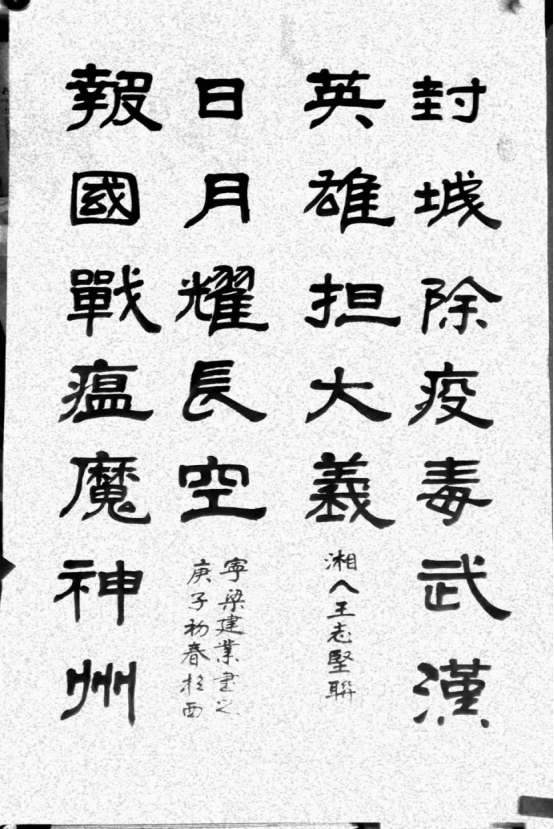 封城除疫毒武漢
英雄担大義
湘人王志堅聯
報國戰瘟魔神州
日月耀長空
庚子初春於西
寧梁建業書之